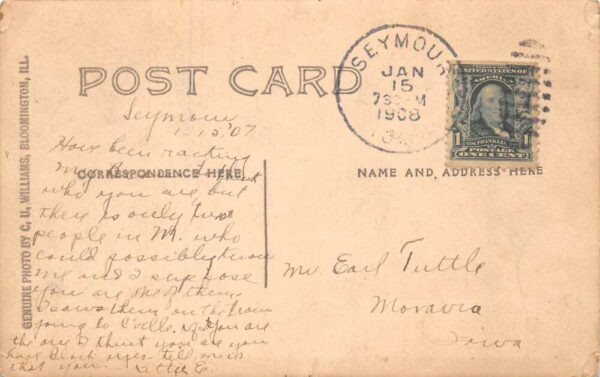 POST CARD
SEYMOUR
JAN
15
1908
UNITED STATES OF
AMERICA
1 FRANKLIN 1
POSTAGE
ONE CENT
GENUINE PHOTO BY C. U. WILLIAMS, BLOOMINGTON, ILL.
CORRESPONDENCE HERE
NAME AND ADDRESS HERE
Seymour
Have been racking
my
who you are but
there is only two
people in M. who
could possibly know
me and I suppose
you are one of them.
I saw them on the train
going to C'ville. If you are
the one I think you are you
have black eyes tell me is
that you. Lettie E.
Mr Earl Tuttle
Moravia
Iowa